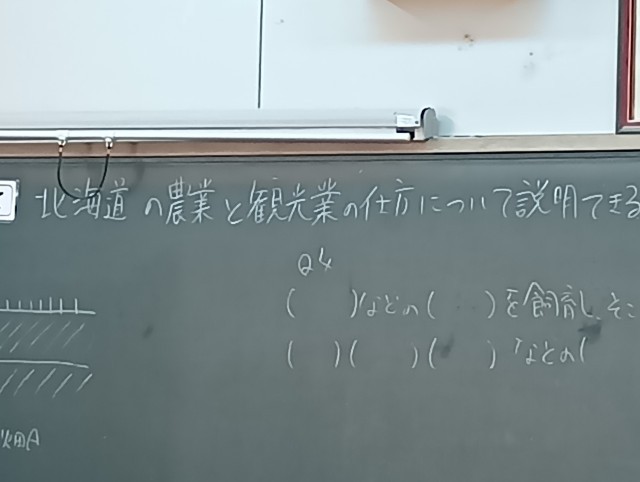 北海道の農業と観光業の仕方について説明できる
Q4
(　　)などの(　　)を飼育し、そこ
(　　)(　　)(　　)などの(
畑A